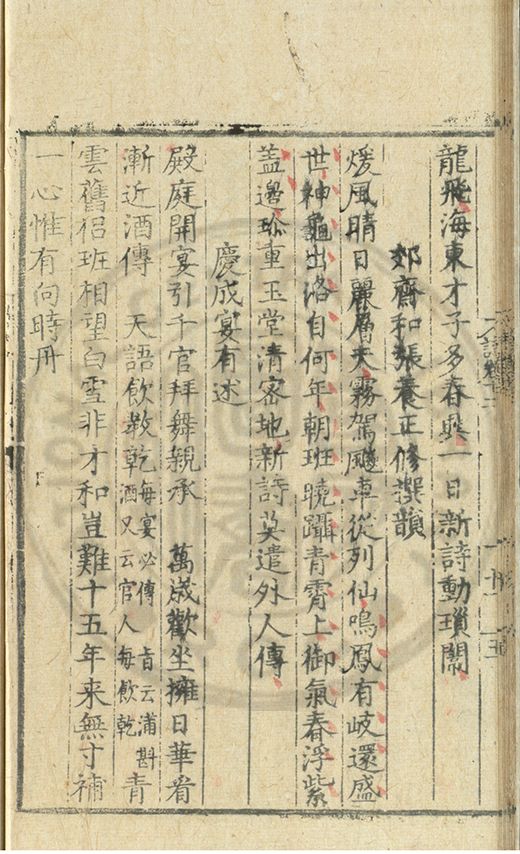 龍飛海東才子多春興一日新詩動瑣闈
郊齋和張養正修撰韻
煖風晴日麗層天霧駕飇車從列仙鳴鳳有岐還盛
世神龜出洛自何年朝班曉躡青霄上御氣春浮紫
蓋邊珍重玉堂清密地新詩莫遣外人傳
慶成宴有述
殿庭開宴引千官拜舞親承 萬歲歡坐擁日華看
漸近酒傳 天語飲教乾每宴必傳旨云滿斟酒又云官人每飲乾青
雲舊侶班相望白雪非才和豈難十五年来無寸補
一心惟有向時丹